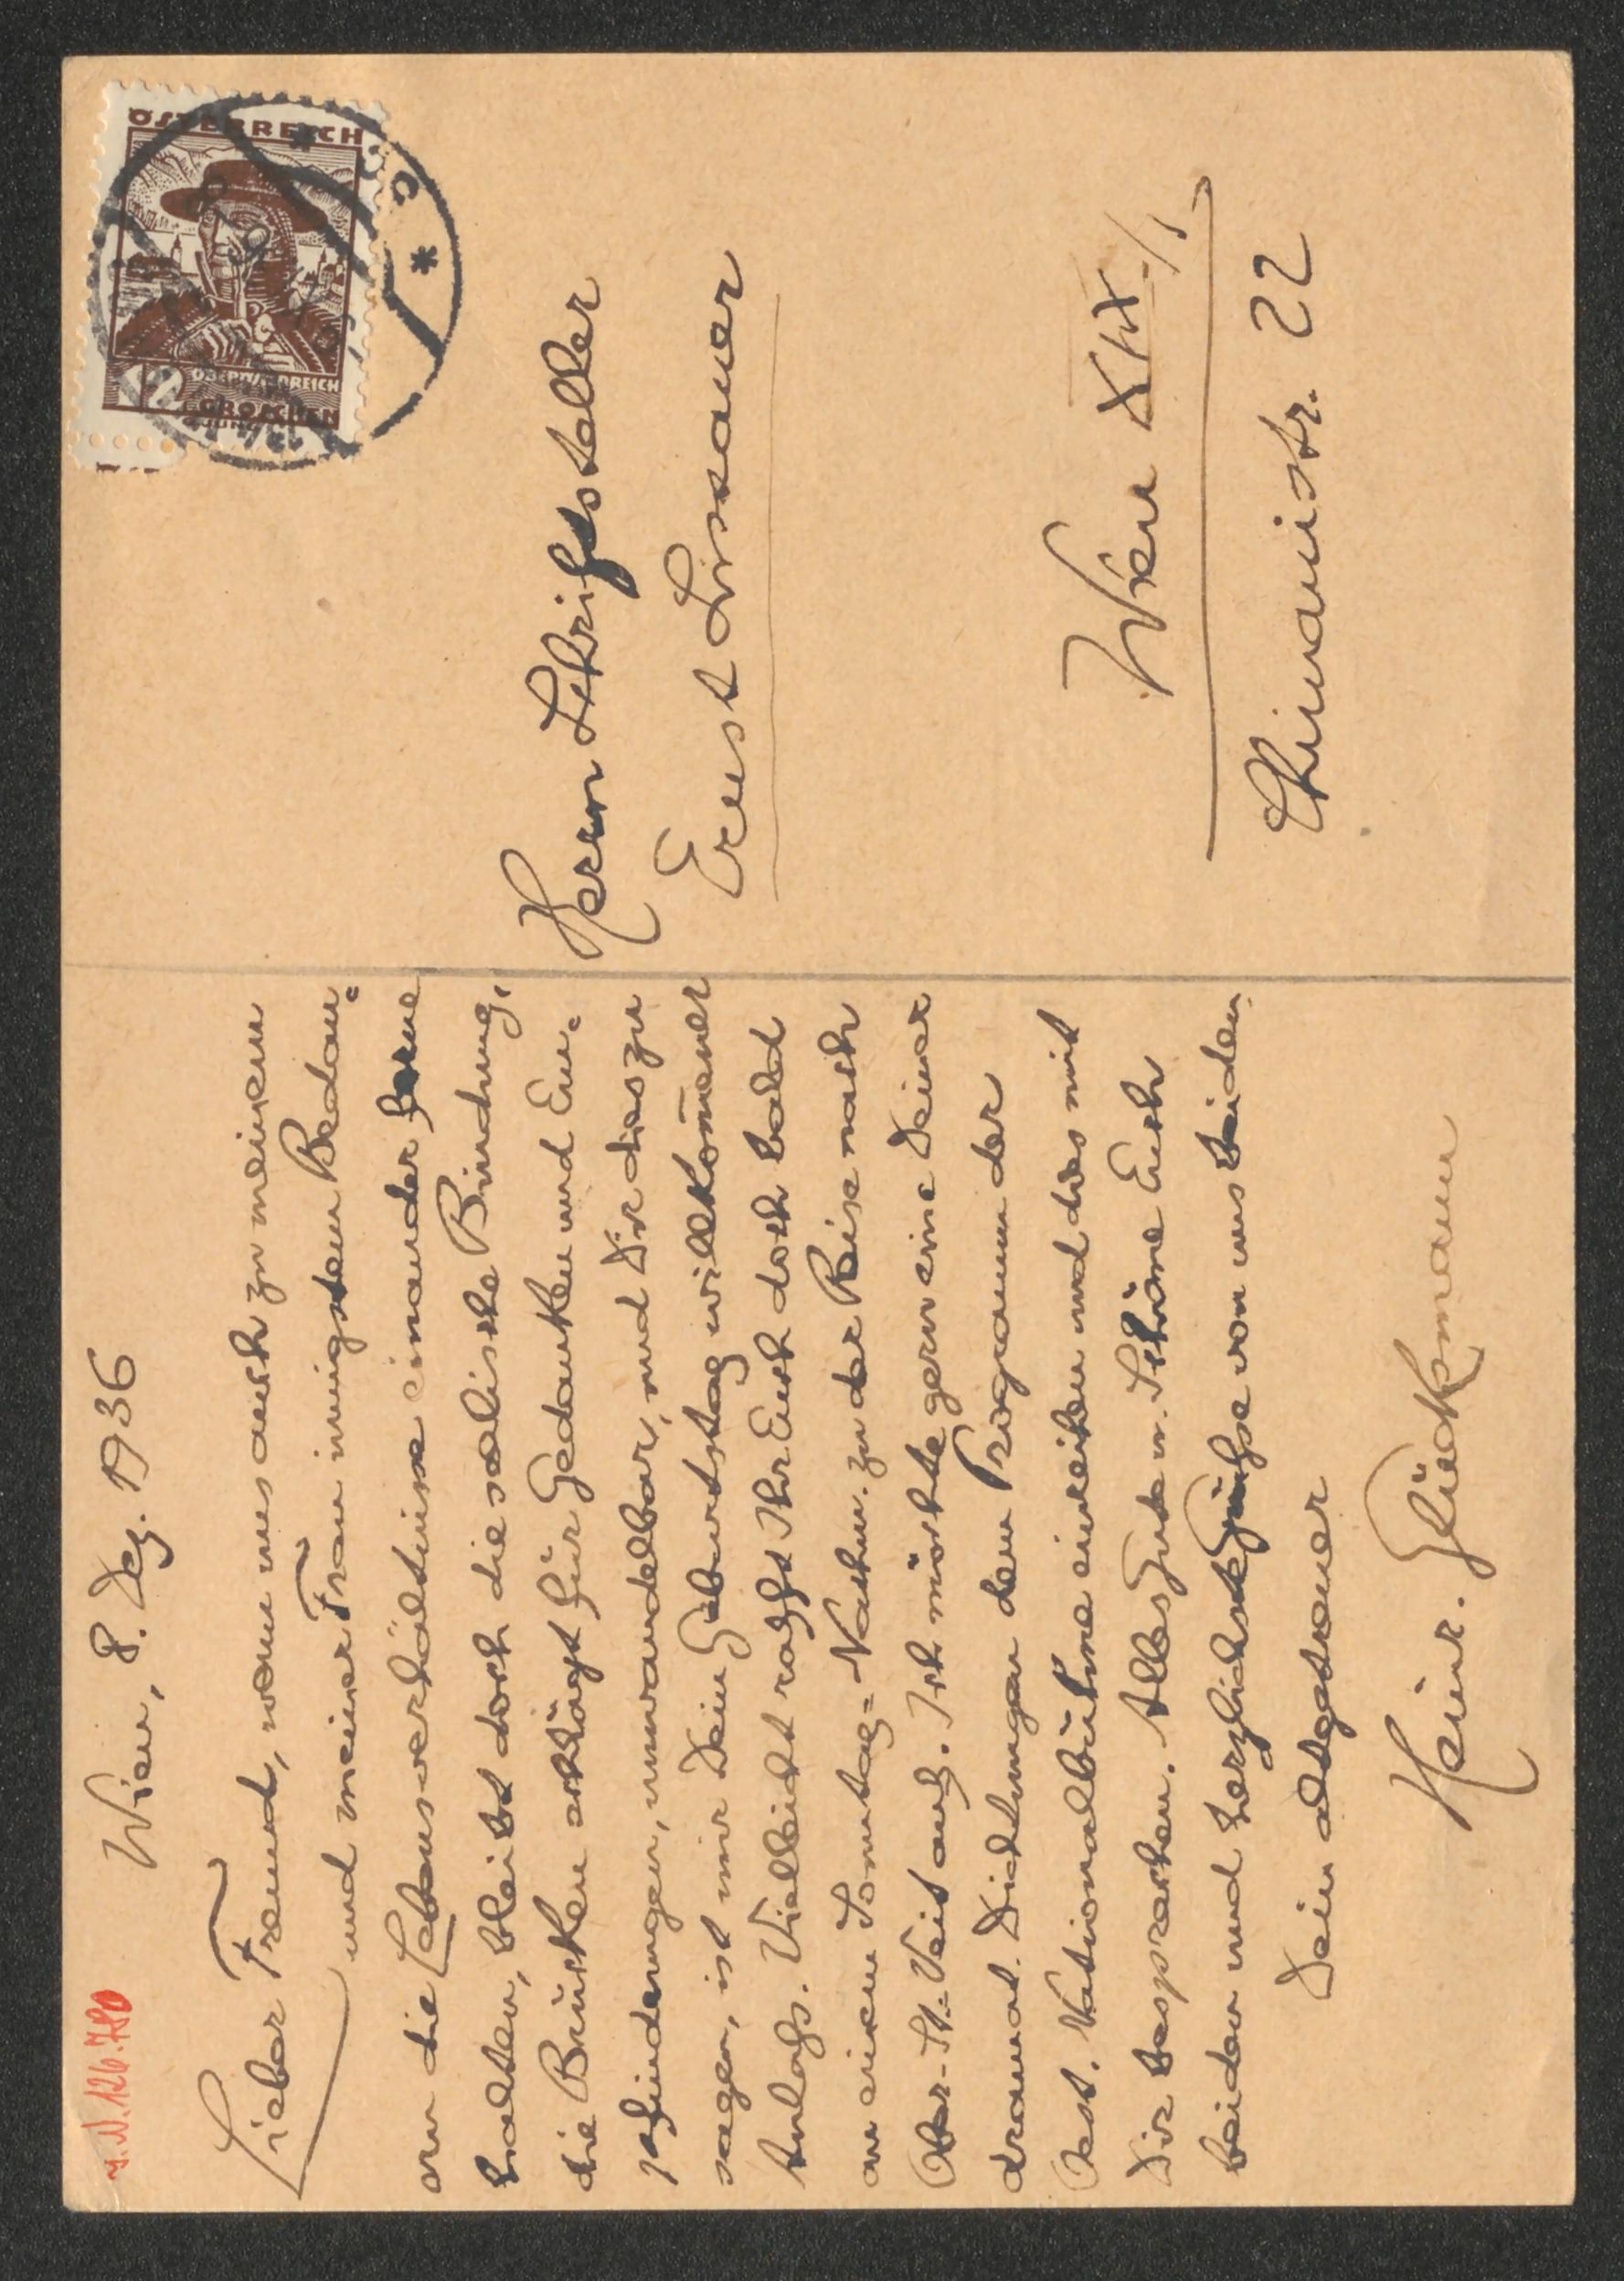 J.N. 126.780
Wien, 8. Dez. 1936
Lieber Freund, wenn uns auch zu meinem
und meiner Frau innigstem Bedau=
ern die Lebensverhältnisse einander ferne
halten, bleibt doch die seelische Bindung,
die Brücken schlägt für Gedanken und Em=
pfindungen, unwandelbar, und Dir dies zu
sagen, ist mir Dein Geburtstag willkom̄ener
Anlaß. Vielleicht rafft Ihr Euch doch bald
an einem Sonntag=Nachm. zu der Reise nach
Ober-St.Veit auf. Ich möchte gern eine Deiner
dramat. Dichtungen dem Programm der
Oest. Nationalbühne einreihen und dies mit
Dir besprechen. Alles Gute u. Schöne Euch
beiden und herzlichste Grüße von uns beiden
Dein altgetreuer
Heinr. Glücksmann
Herrn Schriftsteller
Ernst Lissauer
Wien XIX/1
Chimanistr. 22
ÖSTERREICH
12
OBERÖSTERREICH
GROSCHEN